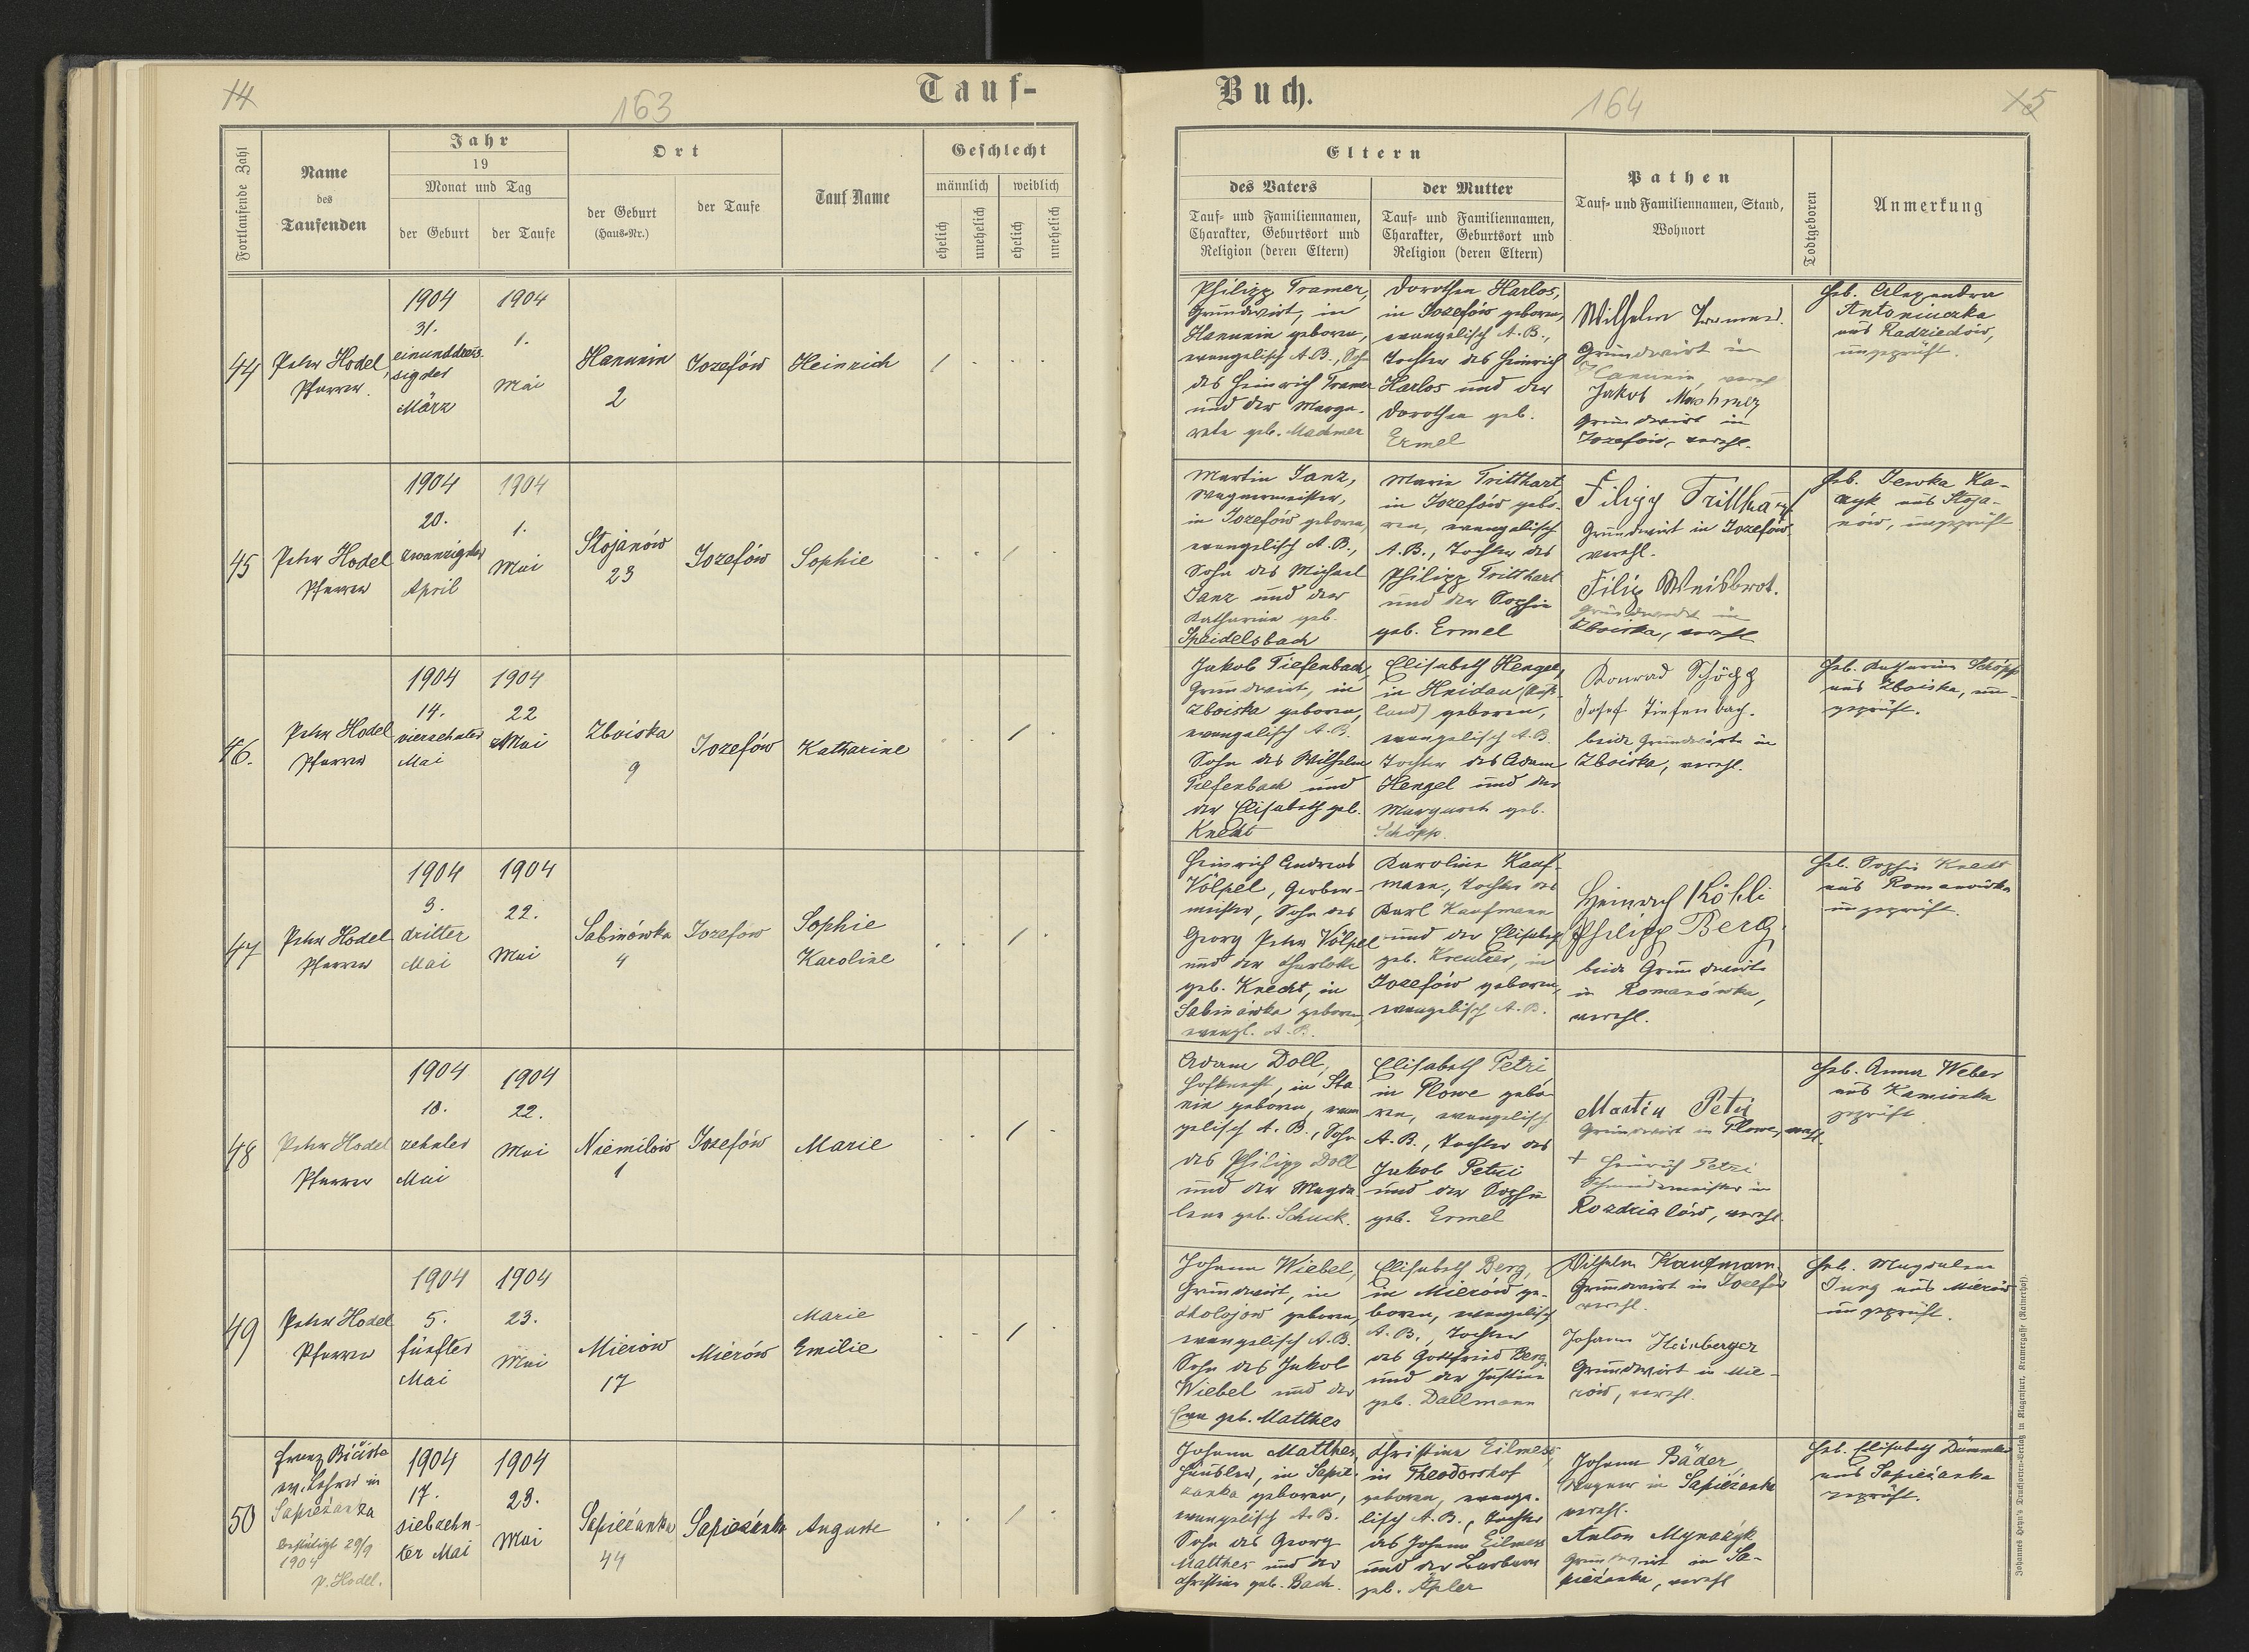 14
163
Tauf-
Fortlaufende Zahl
Name
des
Taufenden
Jahr
19
Monat und Tag
der Geburt
der Taufe
Ort
der Geburt
(Haus-Nr.)
der Taufe
Tauf Name
Geschlecht
männlich
weiblich
ehelich
unehelich
ehelich
unehelich
44
Peter Hodel,
Pfarrer.
1904
31.
einunddreis-
sigster
März
1904
1.
Mai
Hanunin
2
Jozefów
Heinrich
45
Peter Hodel
Pfarrer
1904
20.
zwanzigster
April
1904
1.
Mai
Stojanów
23
Jozefów
Sophie
46.
Peter Hodel
Pfarrer
1904
14.
vierzehnter
Mai
1904
22
Mai
Zboiska
9
Jozefów
Katharine
47
Peter Hodel
Pfarrer
1904
3.
dritter
Mai
1904
22.
Mai
Sabinówka
4
Jozefow
Sophie
Karoline
48
Peter Hodel
Pfarrer
1904
10.
zehnter
Mai
1904
22.
Mai
Niemilów
1
Josefów
Marie
49
Peter Hodel
Pfarrer
1904
5.
fünfter
Mai
1904
23.
Mai
Mierów
17
Mierów
Marie
Emilie
50
Franz
ev. Lehrer in
Sapieżanka
bestätigt 29/9
1904
P. Hodel.
1904
17.
siebzehn-
ter Mai
1904
23.
Mai
Sapieżanka
44
Sapieżanka
Auguste
Buch.
164
15
Eltern
des Vaters
Tauf- und Familiennamen,
Charakter, Geburtsort und
Religion (deren Eltern)
der Mutter
Tauf- und Familiennamen,
Charakter, Geburtsort und
Religion (deren Eltern)
Pathen
Tauf- und Familiennamen, Stand,
Wohnort
Todtgeboren
Anmerkung
Philipp Tramer,
Grundwirt, in
Hanunin geboren,
evangelisch A.B., Sohn
des Heinrich Tramer
und der Marga-
reta geb. Machmer
Dorothea Harlos,
in Jozefów geboren,
evangelisch A.B.,
Tochter des Heinrich
Harlos und der
Dorothea geb.
Ermel
Wilhelm
Grundwirt in
Hanunin, verehl.
Jakob Machmer
Grundwirt in
Jozefów, verehl.
Heb. Alexandra
Antoniuczka
aus Radziechów,
ungeprüft.
Martin Janz,
Wagnermeister,
in Jozefów geboren,
evangelisch A.B.,
Sohn des Michael
Janz und der
Katharina geb.
Speidelsbach
Marie Tritthart
in Jozefów gebo-
ren, evangelisch
A.B., Tochter des
Philipp Tritthart
und der Sophie
geb. Ermel
Filipp Tritthart
Grundwirt in Jozefów
verehl.
Filip Weisbrot.
Grundwirt in
Zboiska, verehl
Heb. Jewka Ka-
czyk aus Stoja-
nów, ungeprüft
Jakob Tiefenbach,
Grundwirt, in
Zboiska geboren,
evangelisch A.B.
Sohn des Wilhelm
Tiefenbach und
der Elisabeth geb.
Knecht
Elisabeth Hengel,
in Hnidau (Russ-
land) geboren,
evangelisch A.B.
Tochter des Adam
Hengel und der
Margareta geb.
Schöpp.
Konrad Schöpp
Josef Tiefenbach.
beide Grundwirte in
Zboiska, verehl.
Heb. Katharina Schöpp
aus Zboiska, un-
geprüft.
Heinrich Andreas
Völpel, Gerber-
meister, Sohn des
Georg Peter Völpel
und der Charlotte
geb. Knecht, in
Sabinówka geboren,
evangl. A.B.
Karoline Kauf-
mann, Tochter des
Karl Kaufmann
und der Elisabeth
geb. Kreutzer, in
Jozefów geboren,
evangelisch A.B.
Heinrich Köhli
Philipp Berg
beide Grundwirte
in Romanówka,
verehl.
Heb. Sophie Knecht
aus Romanówka
ungeprüft.
Adam Doll,
Hofknecht, in Sta
nin geboren, evan
gelisch A.B., Sohn
des Philipp Doll
und der Magda
lena geb. Schuck.
Elisabeth Petri
in Plowe gebo-
ren, evangelisch
A.B., Tochter des
Jakob Petri
und der Sophie
geb. Ermel
Martin Petri
Grundwirt in Plowe, verehl.
+ Heinrich Petri
Schmiedemeister in
Rozdzialów, verehl.
Heb. Anna Weber
aus Kamionka
geprüft
Johann Wiebel,
Grundwirt, in
Cholojow geboren,
evangelisch A.B.
Sohn des Jakob
Wiebel und der
Eva geb. Matthes
Elisabeth Berg,
in Mierów ge-
boren, evangelisch
A.B., Tochter
des Gottfried Berg
und der Justine
geb. Dallmann
Wilhelm Kaufmann
Grundwirt in Jozefów
verehl.
Johann Heinberger
Grundwirt in Mie-
rów, verehl.
Heb. Magdalena
Jung aus Mierów
ungeprüft.
Johann Matthes,
Häusler, in Sapie-
zanka geboren,
evangelisch A.B.
Sohn des Georg
Matthes und der
Christine geb. Bach.
Christine Eilmes,
in Theodorshof
geboren, evange-
lisch A.B., Tochter
des Johann Eilmes
und der Barbara
geb. Apler
Johann Bäder,
Wagner in Sapieżanka
verehl.
Anton Mynazyk
Grundwirt in Sa-
pieżanka, verehl
Heb. Elisabeth Dümmler
aus Sapieżanka
geprüft.